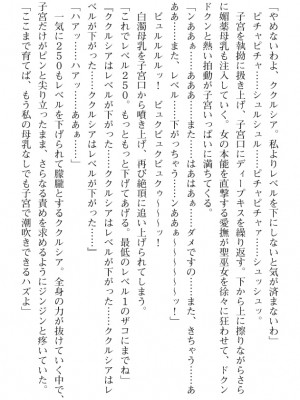 「やめないわよ、ククルシア。私よりレベルを下にしないと気が済まないわ」
ピチャピチャ……シュルシュル……ピチャピチャァ……シュッシュッ。
子宮を執拗に扱き上げ、子宮口にディープキスを繰り返す。下から上に擦りながらさら
に媚薬母乳も注入していく。女の本能を直撃する愛撫が聖巫女を徐々に狂わせて、ドクン
ドクンと熱い拍動が子宮いっぱいに満ちてくる。
「あああ……また、レベル……下がっちゃう……ンああぁ〜〜〜〜〜ッ！
ああ……また……はあはあぁ……ダメですの……また、きちゃう……あ
ビュルルルルッ！ ビュクビュクビュクゥ〜〜〜ッ！
白濁母乳を子宮口から噴き上げ、再び絶頂に追い上げられてしまう。
「これでレベル２５０。もっともっと下げてあげる。最低のレベル１のザコにまでね」
「ククルシアはレベルが下がった……ククルシアはレベルが下がった……ククルシアはレ
ベルが下がった……ククルシアはレベルが下がった……」
「ハァッ……ハァッ……ああぁ……」
一気に２５０もレベルを下げられて朦朧とするククルシア。全身の力が抜けていく中で、
子宮だけがピンと尖り立ったまま、さらなる責めを求めるようにジンジンと疼いていた。
「ここまで育てば、もう私の母乳なしでも子宮で潮吹きできるハズよ」